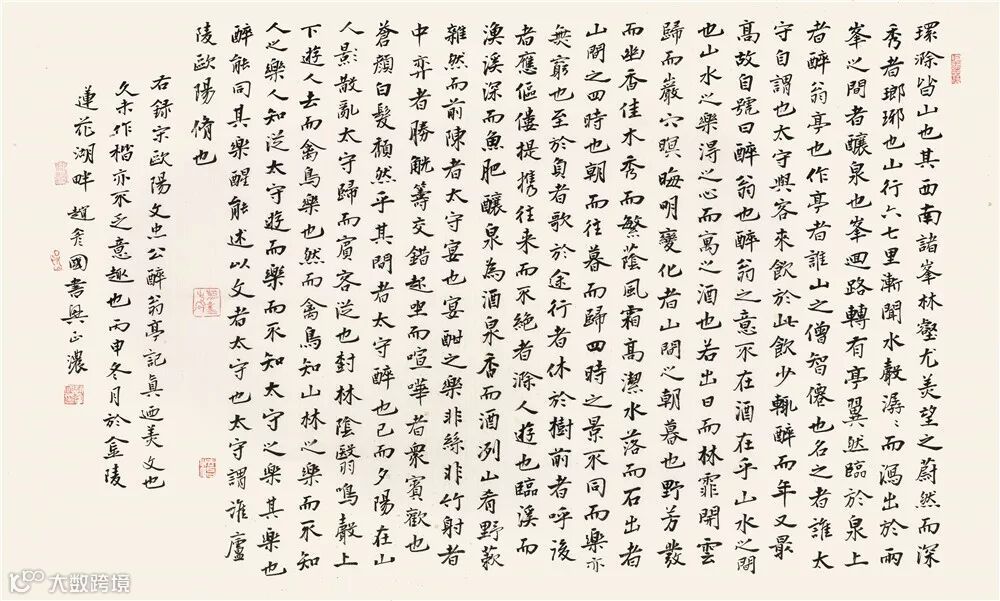 環滁皆山也其西南諸峯林壑尤美望之蔚然而深
秀者瑯琊也山行六七里漸聞水聲潺〻而瀉出於兩
峯之間者釀泉也峯迴路轉有亭翼然臨於泉上
者醉翁亭也作亭者誰山之僧智僊也名之者誰太
守自謂也太守與客來飲於此飲少輒醉而年又最
高故自號曰醉翁也醉翁之意不在酒在乎山水之間
也山水之樂得之心而寓之酒也若出日而林霏開雲
歸而巖穴暝晦明變化者山間之朝暮也野芳發
而幽香佳木秀而繁蔭風霜高潔水落而石出者
山間之四時也朝而往暮而歸四時之景不同而樂亦
無窮也至於負者歌於途行者休於樹前者呼後
者應傴僂提攜往来而不絕者滁人遊也臨溪而
漁溪深而魚肥釀泉為酒泉香而酒洌山肴野蔌
雜然而前陳者太守宴也宴酣之樂非絲非竹射者
中弈者勝觥籌交錯起坐而喧嘩者衆賓歡也
蒼顏白髮頹然乎其間者太守醉也已而夕陽在山
人影散亂太守歸而賓客從也樹林陰翳鳴聲上
下遊人去而禽鳥樂也然而禽鳥知山林之樂而不知
人之樂人知從太守遊而樂而不知太守之樂其樂也
醉能同其樂醒能述以文者太守也太守謂誰廬
陵歐陽脩也
右錄宋歐陽文忠公醉翁亭記真迺美文也
久未作楷亦不乏意趣也丙申冬月於金陵
蓮花湖畔趙彥國書興正濃
大数跨境